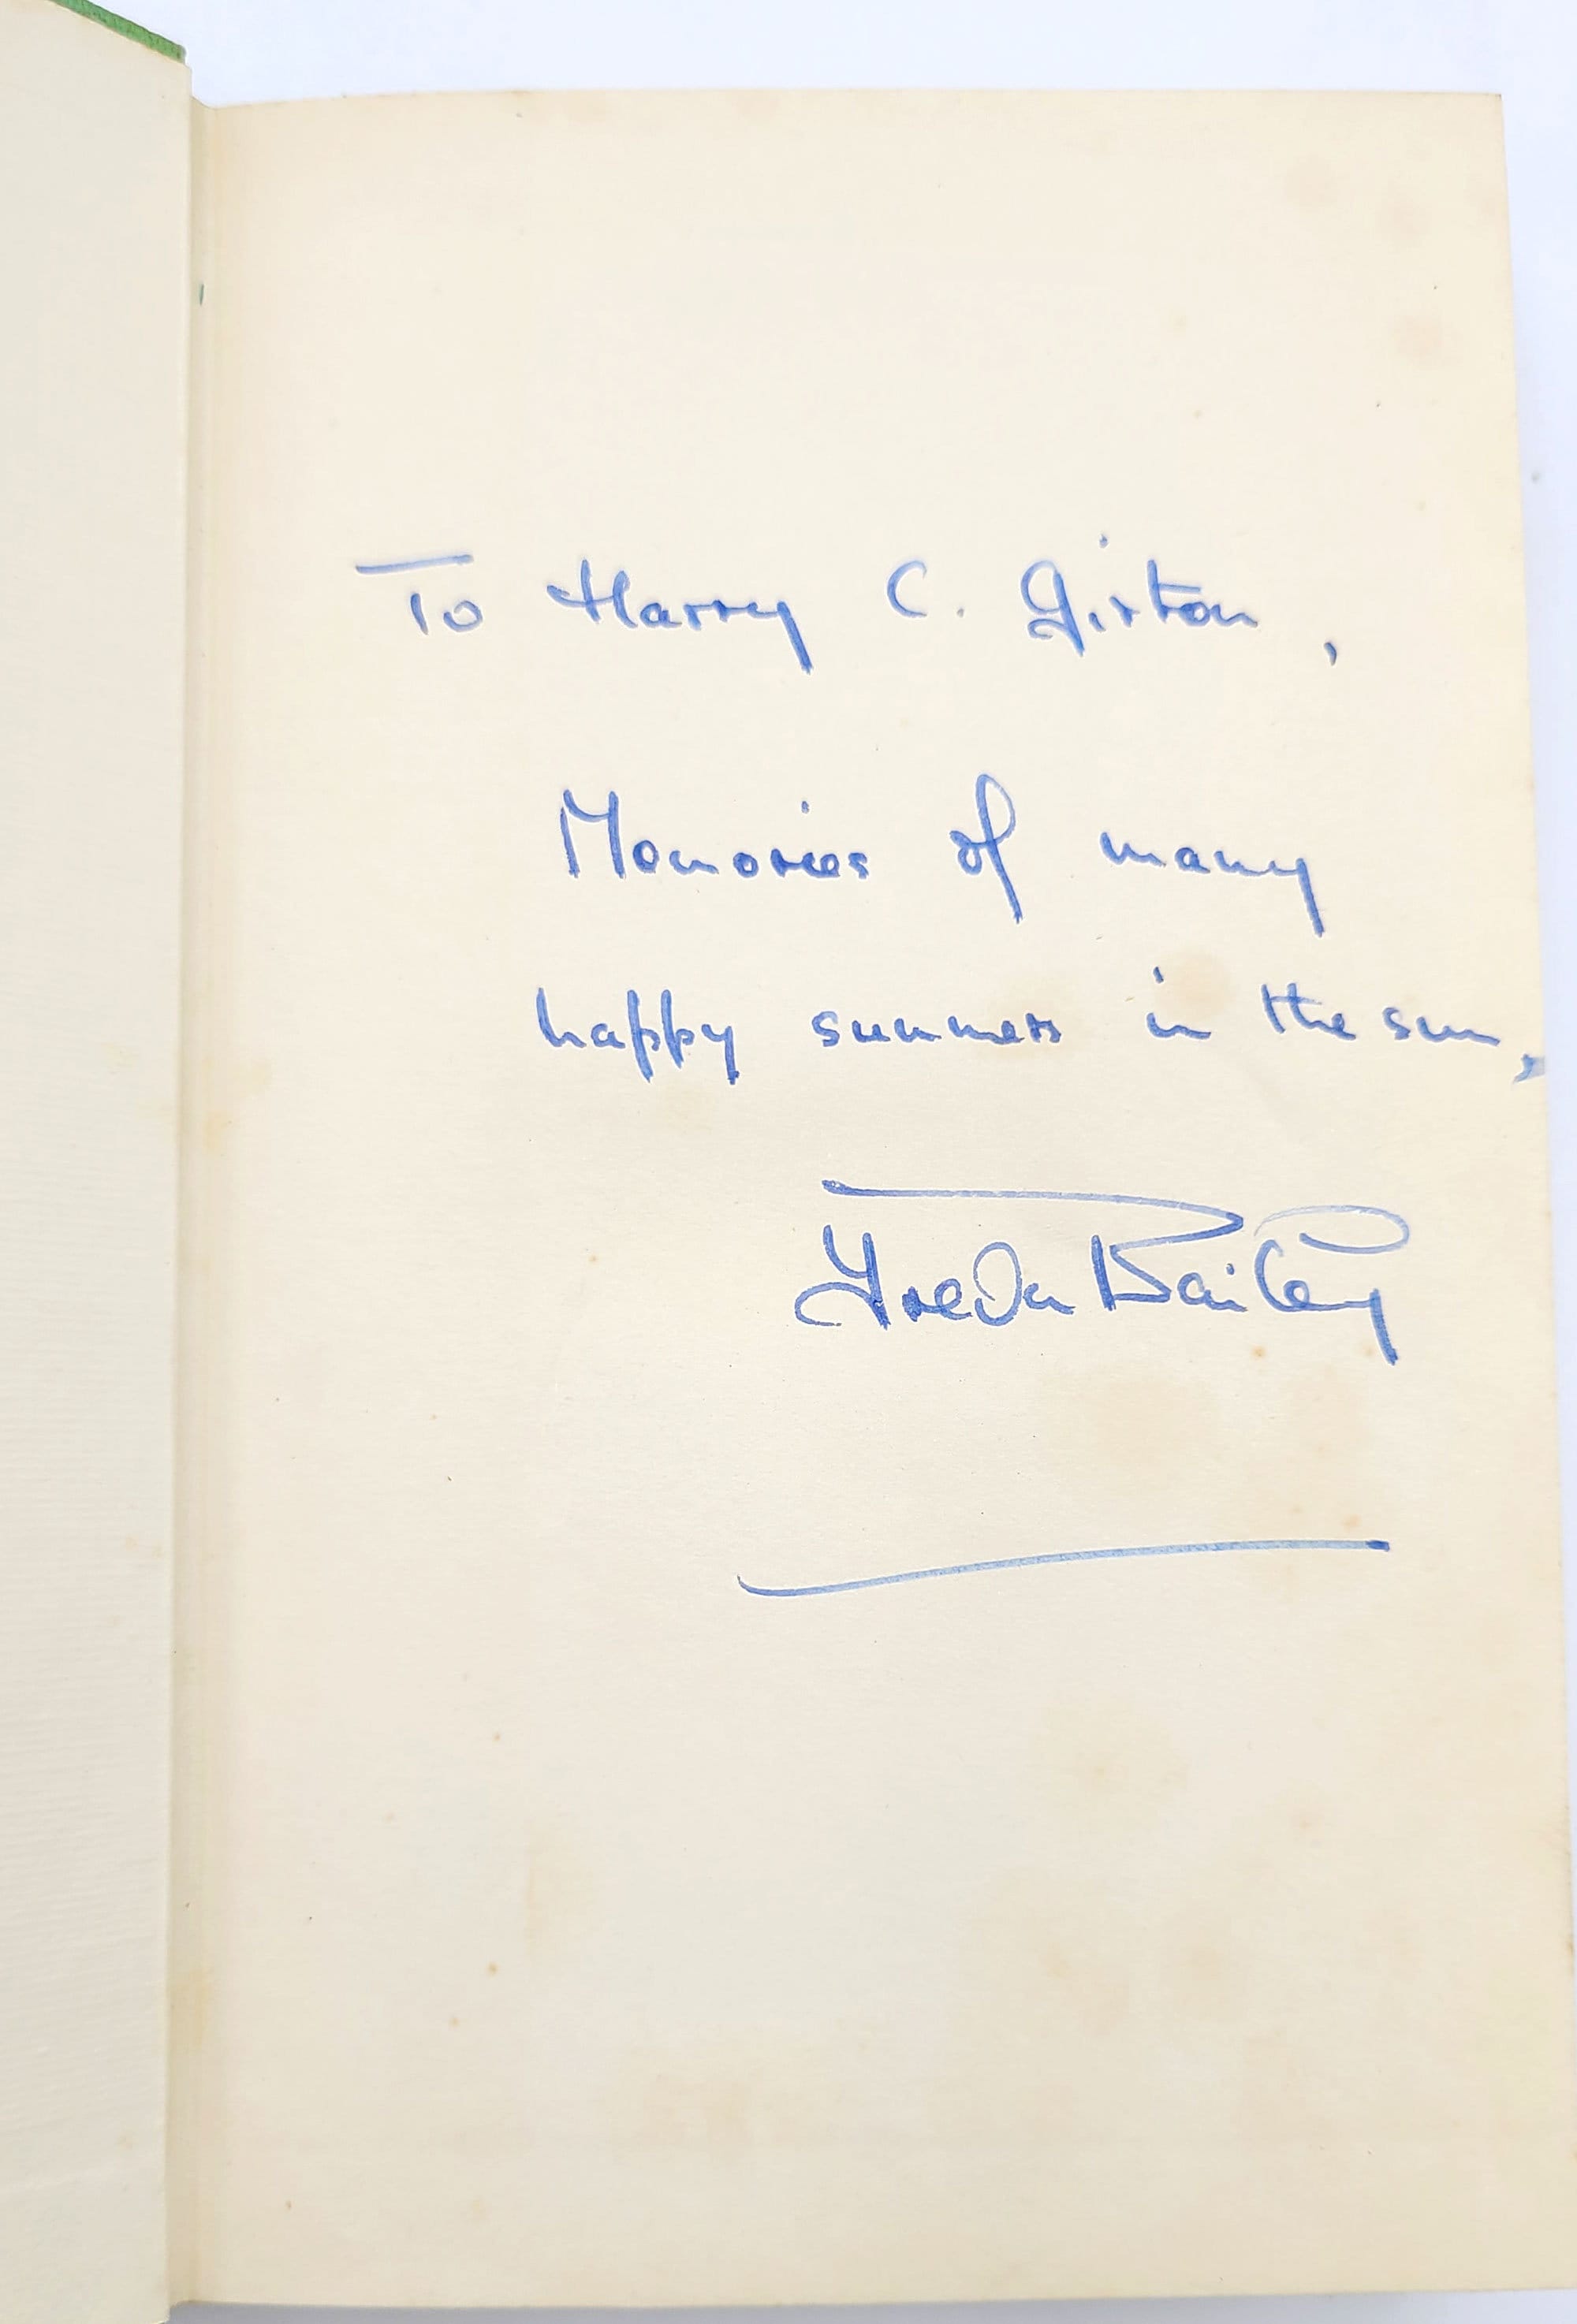 To Harry C. Girton,
Memories of many
happy summers in the sun,
Freda Bailey